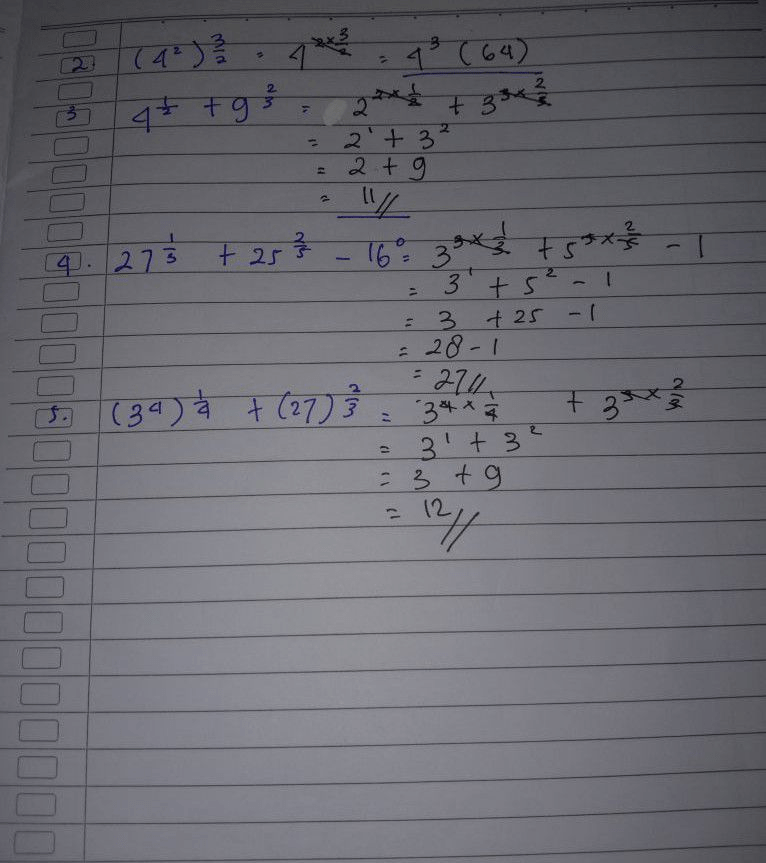 2. (4²)^3/2 = 4^2×3/2 = 4³ (64)
3 4^1/2 + 9^2/3 = 2^2×1/2 + 3^3×2/3
= 2¹ + 3²
= 2 + 9
= 11//
4. 27^1/3 + 25^2/5 - 16⁰ = 3^3×1/3 + 5^5×2/5 - 1
= 3¹ + 5² - 1
= 3 + 25 - 1
= 28 - 1
= 27//
5. (3⁴)^1/4 + (27)^2/3 = 3^4×1/4 + 3^3×2/3
= 3¹ + 3²
= 3 + 9
= 12//